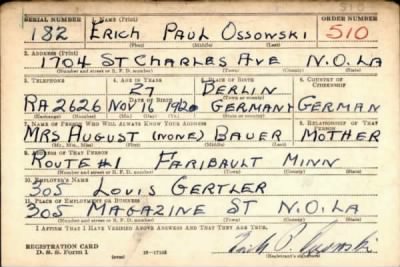 SERIAL NUMBER 1. NAME (Print) ORDER NUMBER
182 ERICH PAUL OSSOWSKI 510
(First) (Middle) (Last)
2. ADDRESS (Print)
1704 ST CHARLES AVE N.O. LA
(Number and street or R. F. D. number) (Town) (County) (State)
3. TELEPHONE 4. AGE IN YEARS 5. PLACE OF BIRTH 6. COUNTRY OF CITIZENSHIP
27 BERLIN
DATE OF BIRTH
RA 2626 NOV 16 GERMANY GERMAN
(Exchange) (Number) (Mo.) (Day) (Yr.) (State or country)
7. NAME OF PERSON WHO WILL ALWAYS KNOW YOUR ADDRESS 8. RELATIONSHIP OF THAT PERSON
MRS AUGUST (NONE) BAUER MOTHER
(Mr., Mrs., Miss) (First) (Middle) (Last)
9. ADDRESS OF THAT PERSON
ROUTE #1 FARIBAULT MINN
(Number and street or R. F. D. number) (Town) (County) (State)
10. EMPLOYER'S NAME
305 LOUIS GERTLER
11. PLACE OF EMPLOYMENT OR BUSINESS
305 MAGAZINE ST N.O. LA
(Number and street or R. F. D. number) (Town) (County) (State)
I AFFIRM THAT I HAVE VERIFIED ABOVE ANSWERS AND THAT THEY ARE TRUE.
REGISTRATION CARD
D. S. S. Form 1 (over) 16-17105 (Registrant's signature)